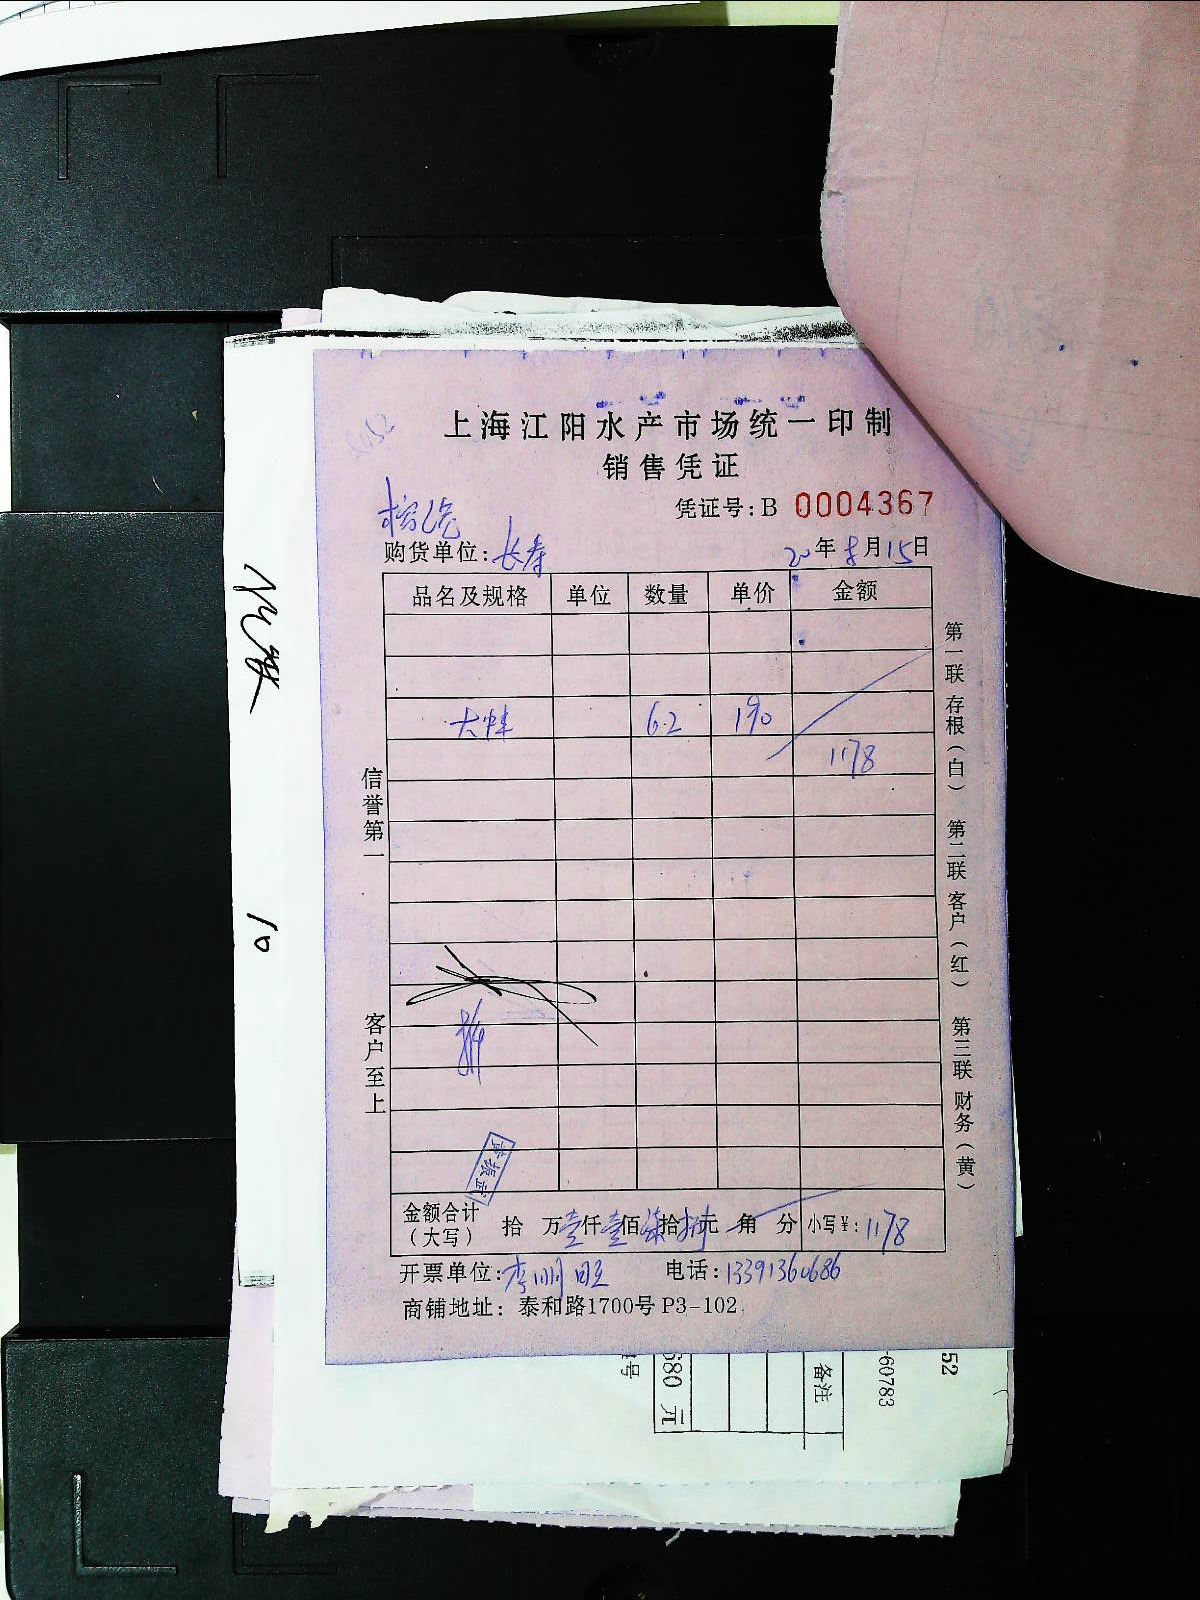 上海江阳水产市场统一印制
销售凭证
凭证号:B 0004367
购货单位:长寿
20年8月15日
品名及规格 单位 数量 单价 金额
大蚌 6.2 190
1178
信誉第一
客户至上
第一联 存根(白) 第二联 客户(红) 第三联 财务(黄)
金额合计(大写) 拾 万壹仟壹佰柒拾捌元 角 分 小写¥:1178
开票单位:李明旺 电话:13391360686
商铺地址:泰和路1700号P3-102
10
680 元
备注
-60783
52